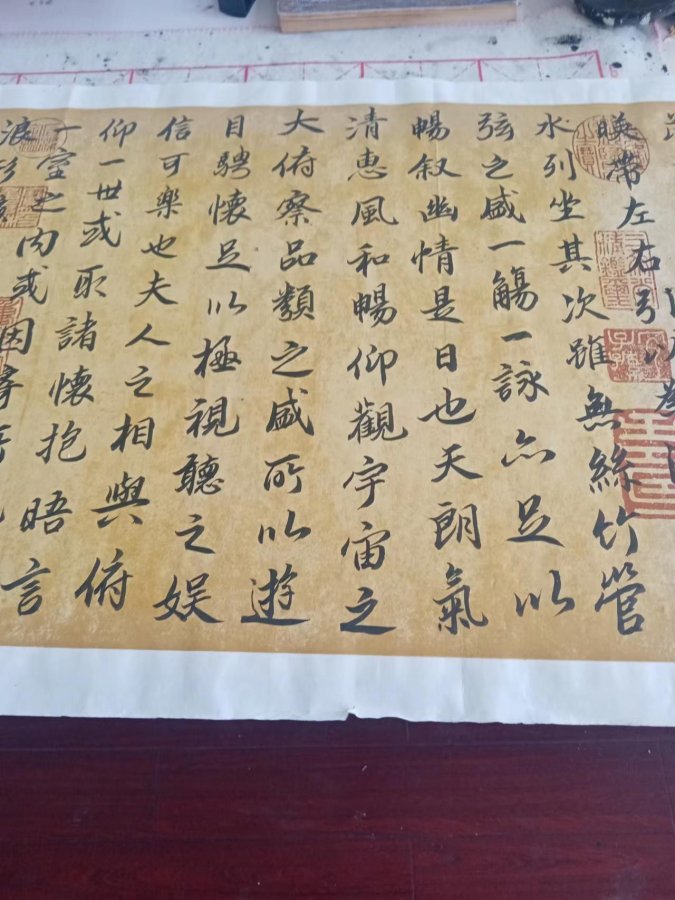 暎帶左右引以為
水列坐其次雖無絲竹管
弦之盛一觴一詠亦足以
暢叙幽情是日也天朗氣
清惠風和暢仰觀宇宙之
大俯察品類之盛所以遊
目騁懷足以極視聽之娱
信可樂也夫人之相與俯
仰一世或取諸懷抱晤言
一室之内或因寄
浪形